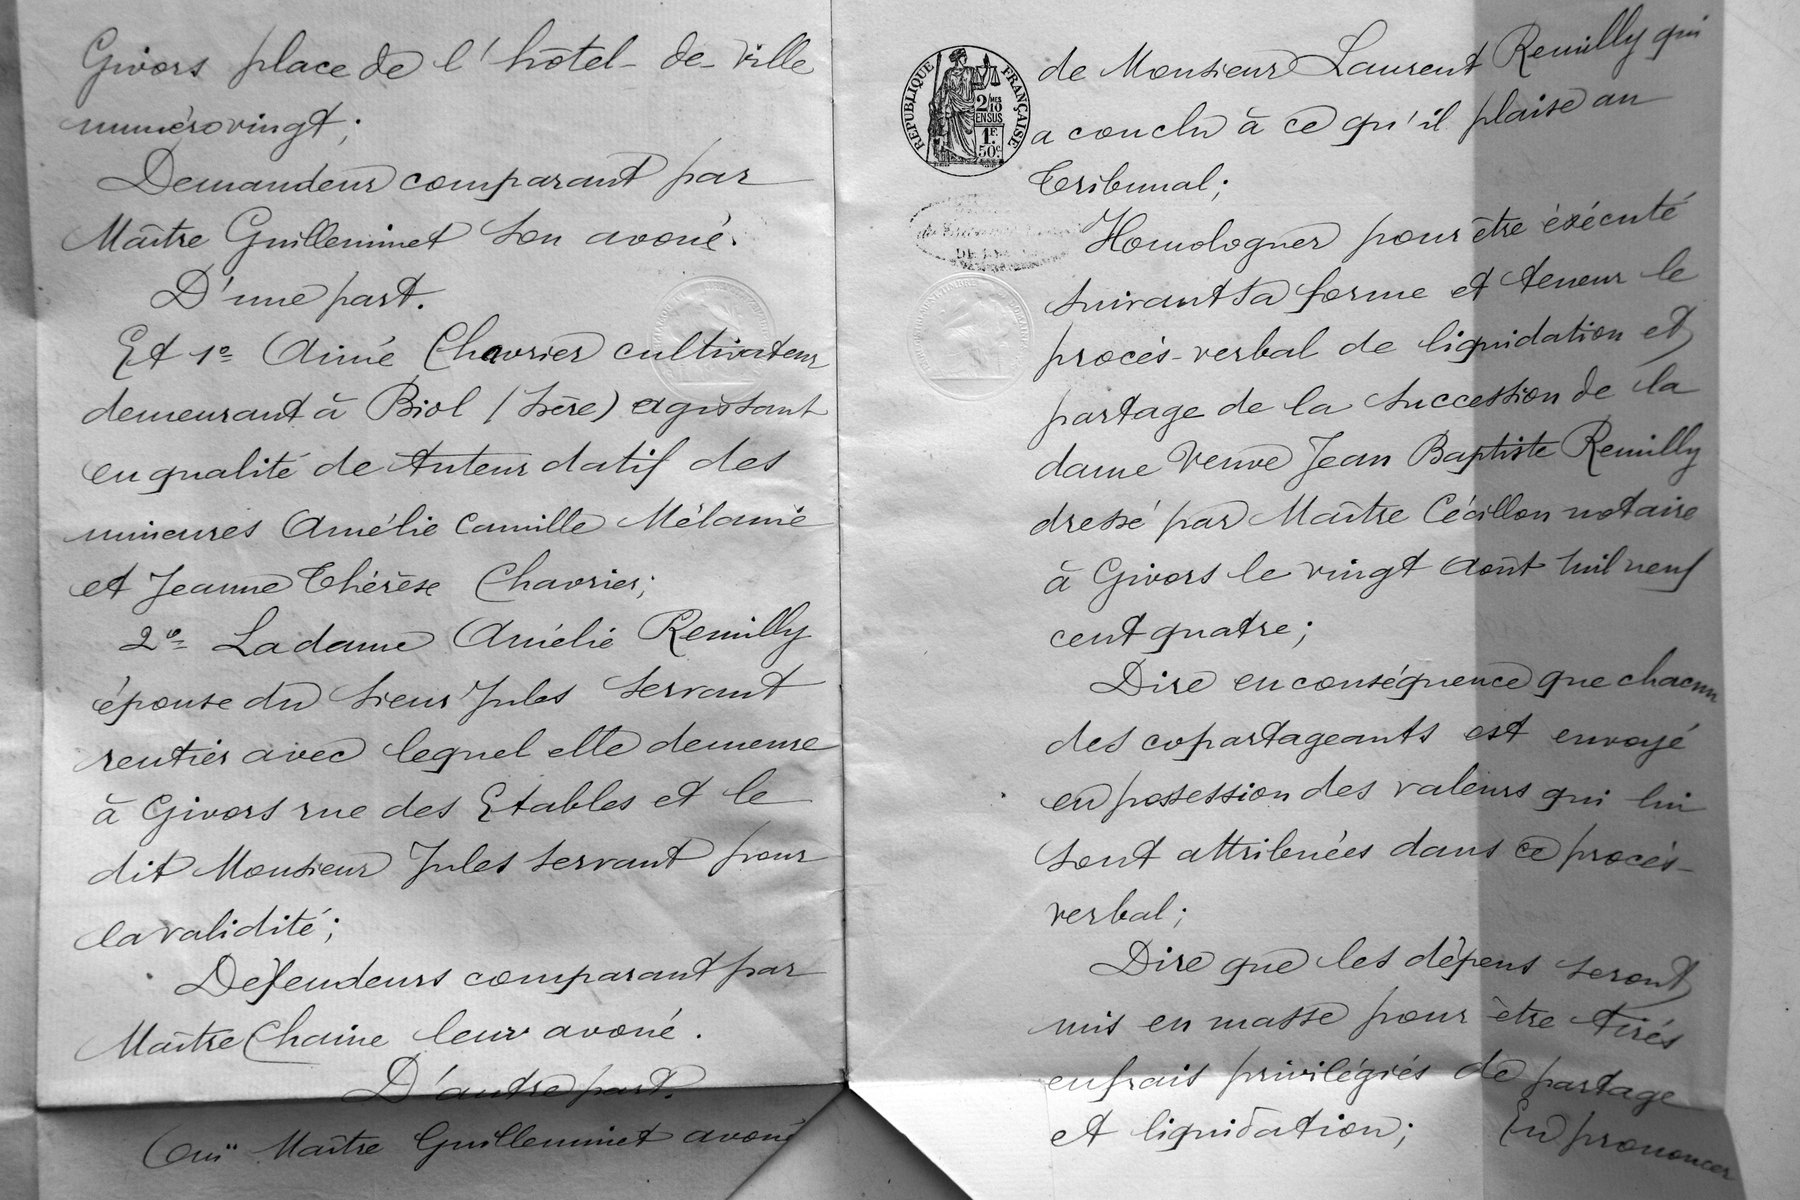 Givors place de l'hôtel-de-ville
numéro vingt;
Demandeur comparant par
Maître Guilleminet son avoué.
D'une part.
Et 1º Aimé Chavrier cultivateur
demeurant à Biol (Isère) agissant
en qualité de tuteur datif des
mineures Amélie Camille Mélanie
et Jeanne Thérèse Chavrier;
2º La dame Amélie Remilly
épouse du sieur Jules Servant
rentier avec lequel elle demeure
à Givors rue des Etables et le
dit Monsieur Jules Servant pour
la validité;
Défendeurs comparant par
Maître Chaine leur avoué.
D'autre part.
Ouï Maître Guilleminet avoué
RÉPUBLIQUE FRANÇAISE
2/10
EN SUS
1F.
50c.
de Monsieur Laurent Remilly qui
a conclu à ce qu'il plaise au
Tribunal;
Homologuer pour être éxécuté
suivant sa forme et teneur le
procès-verbal de liquidation et
partage de la succession de la
dame Veuve Jean Baptiste Remilly
dressé par Maître Cécillon notaire
à Givors le vingt août mil neuf
cent quatre;
Dire en conséquence que chacun
des copartageants est envoyé
en possession des valeurs qui lui
sont attribuées dans ce procès-
verbal;
Dire que les dépens seront
mis en masse pour être tirés
en frais privilégiés de partage
et liquidation; En prononcer